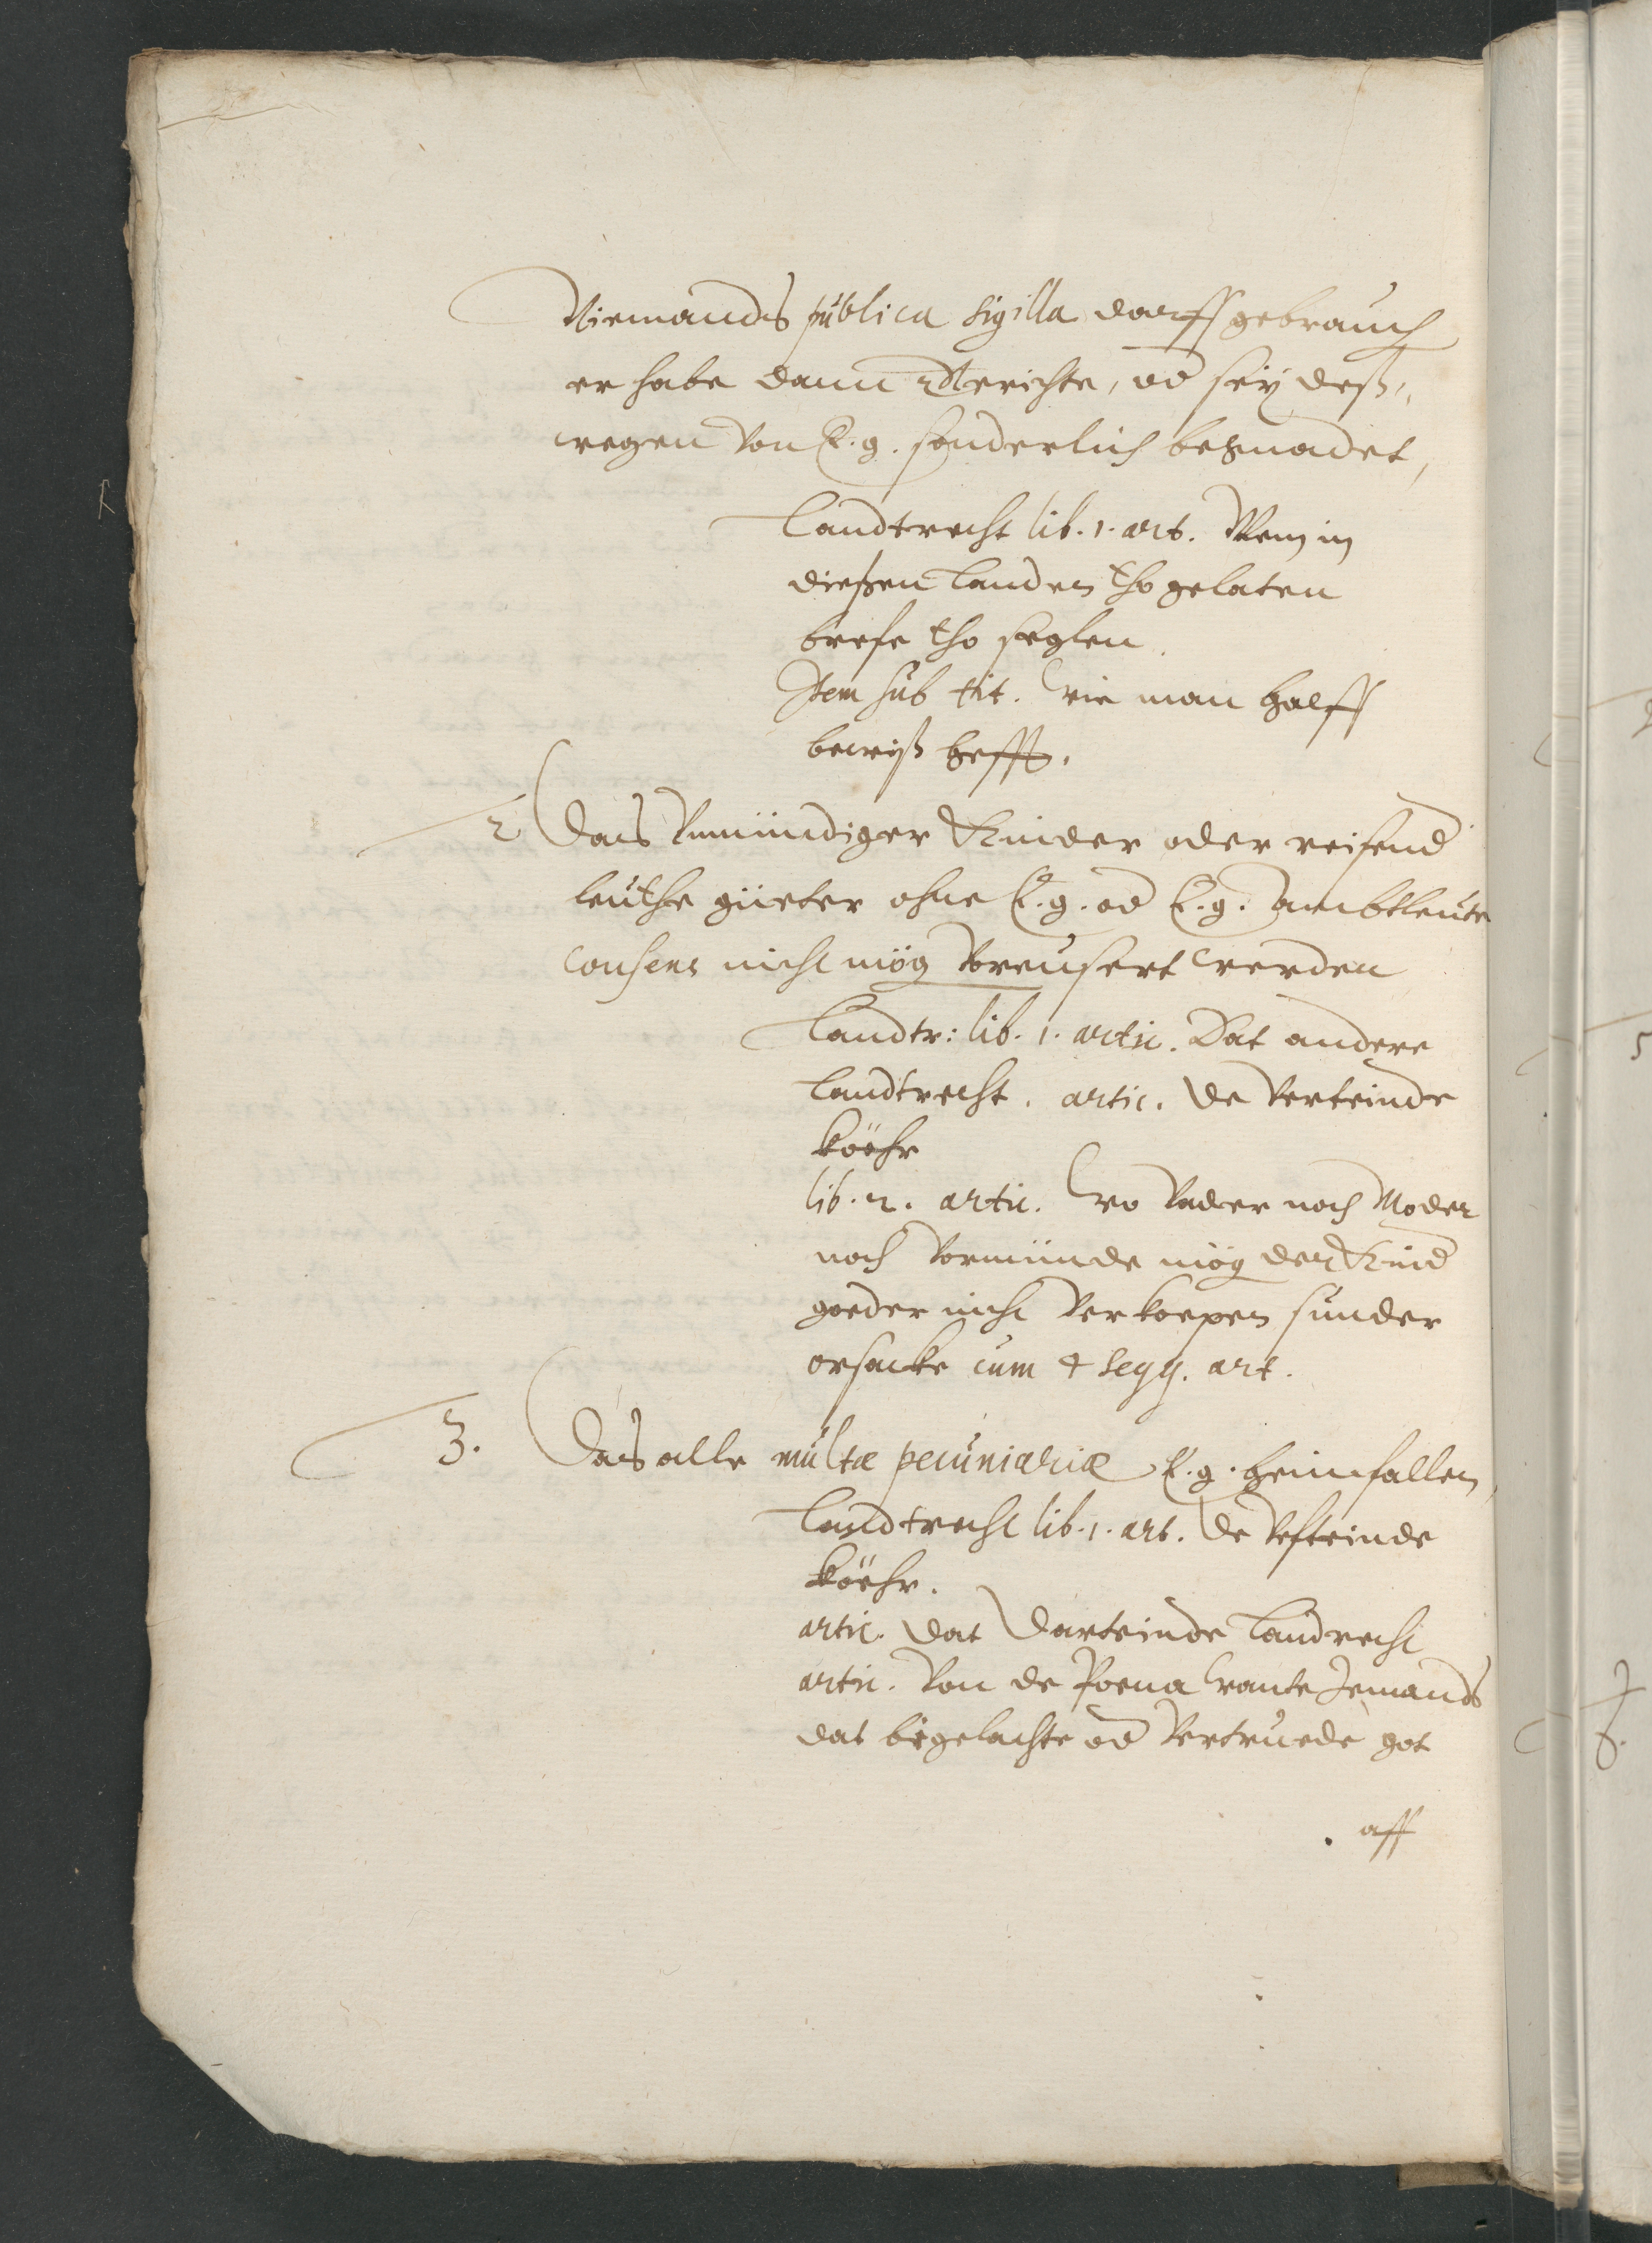 Niemands publica sigilla darff gebrauch
er habe dann Gerichte, od sey deß,,
wegen von E. g. sonderlich begnadet,
Landtrecht lib. 1. art. Wem in
dießen Landen tho gelaten
brefe tho seglen.
Item sub tit. Wie man halff
bewiß hefft.
2 Das Unmündiger Kinder oder reisend
leuthe güeter ohne E. g. od E. g. Ambtleute
consens nicht mög vereusert werden
Landtr: lib. 1. artic. Dat andere
Landtrecht. artic. de Verteinde
köehr
lib. 2. artic. Wo Vader noch Moder
noch Vormünde mög der Kind
goeder nicht verkoepen sunder
orsacke cum 4 seqq. art.
3. Das alle multæ pecuniariæ E. g. heimfallen,
Landtrecht lib. 1. art. de Vefteinde
köehr.
artic. dat Darteinde Landrecht
artic. Von de Poena Wante Jemands
dat bigelachte od Vertruede got
aff